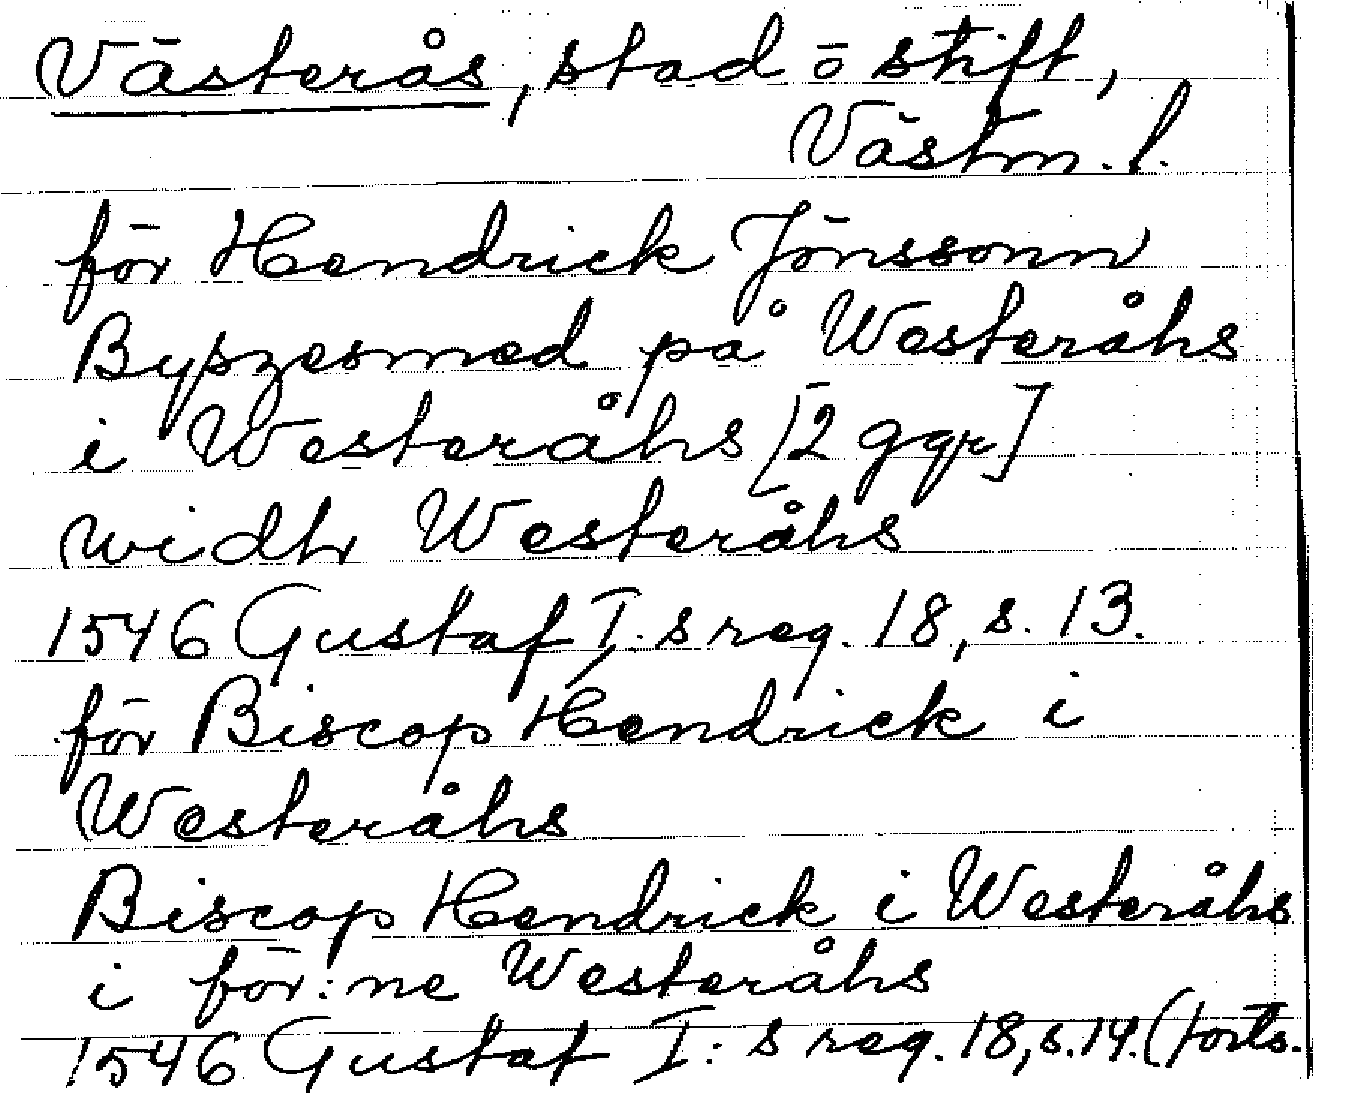 Västerås, stad o stift,
Västm. l.
för Hendrick Jönssonn
Byszesmed på Westeråhs
i Westeråhs [2 ggr]
widh Westeråhs
1546 Gustaf I:s reg. 18, s. 13.
för Biscop Hendrick i
Westeråhs
Biscop Hendrick i Westeråhs
i för:ne Westeråhs
1546 Gustaf I:s reg. 18, s. 14. (forts.